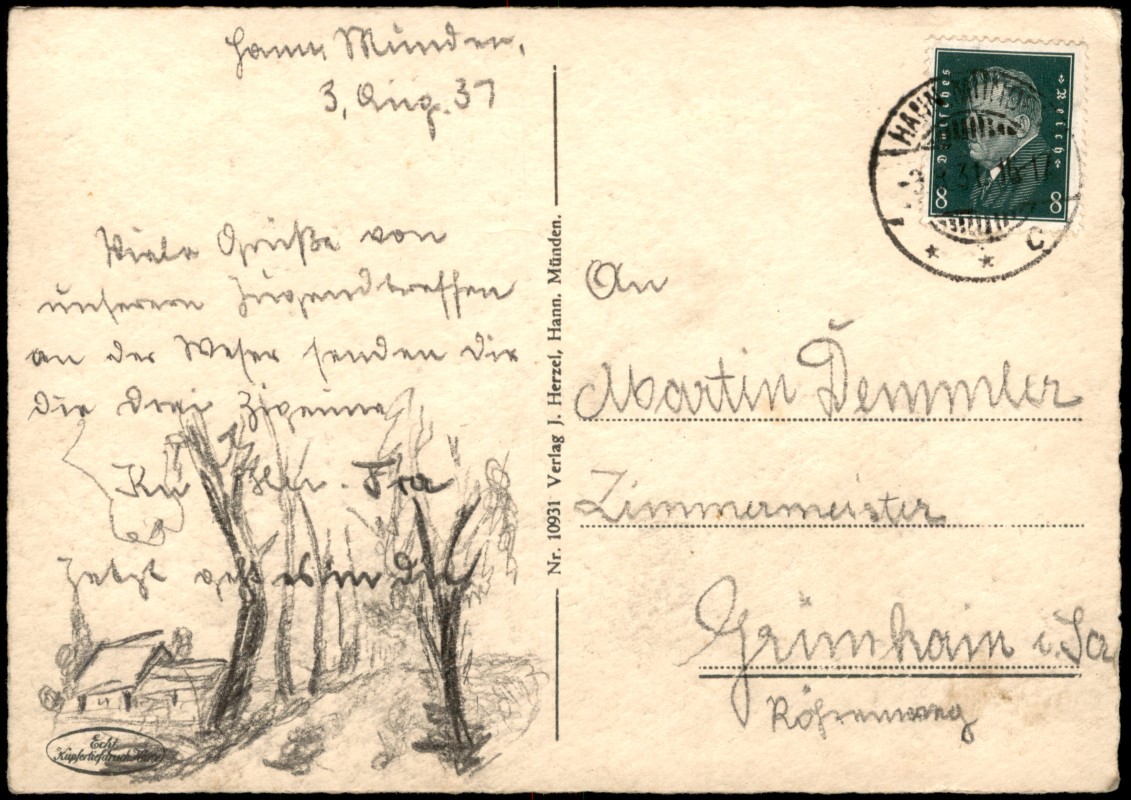 Hann. Münden,
3. Aug. 31
Viele Grüße von
unserem Jugendtreffen
an der Weser senden Dir
die drei Zigeuner
Fra
Jetzt geht es in die
Echt
Kupfertiefdruck
Nr. 10931 Verlag J. Herzel, Hann. Münden.
Deutsches Reich
8 8
HANN. MÜNDEN
3.8.31. 16-17
* * C
An
Martin Demmler
Zimmermeister
Grünhain i. Sa
Röhrenweg